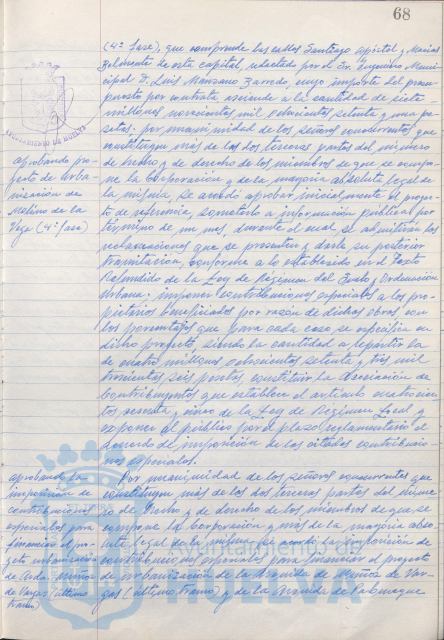 68
(4ª fase), que comprende las calles Santiago Apóstol y Macías
Belmonte de esta capital, redactado por el Sr. Ingeniero Muni-
cipal D. Luis Manzano Zarredo, cuyo importe del presu-
puesto por contrata asciende a la cantidad de siete
millones novecientas mil ochocientas setenta y una pe-
setas: por unanimidad de los señores concurrentes que
constituyen más de las dos terceras partes del número
de hecho y de derecho de los miembros de que se compo-
ne la Corporación y de la mayoría absoluta legal de
la misma, se acordó aprobar inicialmente el proyec-
to de referencia, someterlo a información pública por
término de un mes, durante el cual se admitirán las
reclamaciones que se presenten y darle su posterior
tramitación, conforme a lo establecido en el Texto
Refundido de la Ley de Régimen del Suelo y Ordenación
Urbana; imponer contribuciones especiales a los pro-
pietarios beneficiados por razón de dichas obras con
los porcentajes que para cada caso se especifica en
dicho proyecto, siendo la cantidad a repartir la
de cuatro millones ochocientas setenta y tres mil
trescientas seis pesetas, constituir la Asociación de
Contribuyentes que establece el artículo cuatrocien-
tos sesenta y cinco de la Ley de Régimen Local y
exponer al público por el plazo reglamentario el
acuerdo de imposición de las citadas contribucio-
nes especiales.
Por unanimidad de los señores concurrentes que
constituyen más de las dos terceras partes del núme-
ro de hecho y de derecho de los miembros de que se
compone la Corporación y más de la mayoría abso-
luta legal de la misma, se acordó la imposición de
contribuciones especiales para financiar el proyecto
de urbanización de la Avenida de Muñoz de Var-
gas (último tramo) y de la Avenida de
AYUNTAMIENTO DE HUELVA
aprobando pro-
yecto de urba-
nización de
Molino de la
Vega (4ª fase)
aprobando la
imposición de
contribuciones
especiales para
financiar el pro-
yecto urbanización
de Avda. Muñoz
de Vargas (último
tramo)
Ayuntamiento de
HUELVA